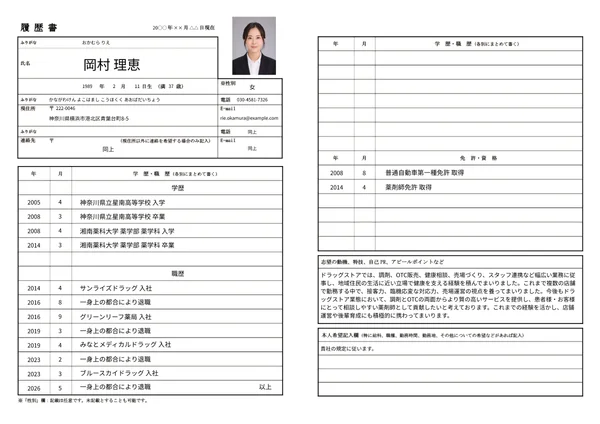 履 歴 書
20〇〇 年 ×× 月 △△ 日現在
ふりがな おかむら りえ
氏名 岡村 理恵
1989 年 2 月 11 日生 (満 37 歳)
※性別
女
ふりがな かながわけん よこはまし こうほくく あおばだいちょう
現住所 〒 222-0046
神奈川県横浜市港北区青葉台町8-5
電話 050-4581-7326
E-mail
rie.okamura@example.com
ふりがな
連絡先 〒 (現住所以外に連絡を希望する場合のみ記入)
同上
電話 同上
E-mail
同上
年 月 学 歴・職 歴 (各別にまとめて書く)
学歴
2005 4 神奈川県立星南高等学校 入学
2008 3 神奈川県立星南高等学校 卒業
2008 4 湘南薬科大学 薬学部 薬学科 入学
2014 3 湘南薬科大学 薬学部 薬学科 卒業
職歴
2014 4 サンライズドラッグ 入社
2016 8 一身上の都合により退職
2016 9 グリーンリーフ薬局 入社
2019 3 一身上の都合により退職
2019 4 みなとメディカルドラッグ 入社
2023 2 一身上の都合により退職
2023 3 ブルースカイドラッグ 入社
2026 5 一身上の都合により退職 以上
※「性別」欄：記載は任意です。未記載とすることも可能です。
年 月 学 歴・職 歴 (各別にまとめて書く)
年 月 免 許・資 格
2008 8 普通自動車第一種免許 取得
2014 4 薬剤師免許 取得
志望の動機、特技、自己PR、アピールポイントなど
ドラッグストアでは、調剤、OTC販売、健康相談、売場づくり、スタッフ連携など幅広い業務に従
事し、地域住民の生活に近い立場で健康を支える経験を積んでまいりました。これまで複数の店舗
で勤務する中で、接客力、臨機応変な対応力、売場運営の視点を養ってまいりました。今後もドラ
ッグストア業態において、調剤とOTCの両面からより質の高いサービスを提供し、患者様・お客様
にとって相談しやすい薬剤師として貢献したいと考えております。これまでの経験を活かし、店舗
運営や後輩育成にも積極的に携わってまいります。
本人希望記入欄 (特に給料、職種、勤務時間、勤務地、その他についての希望などがあれば記入)
貴社の規定に従います。